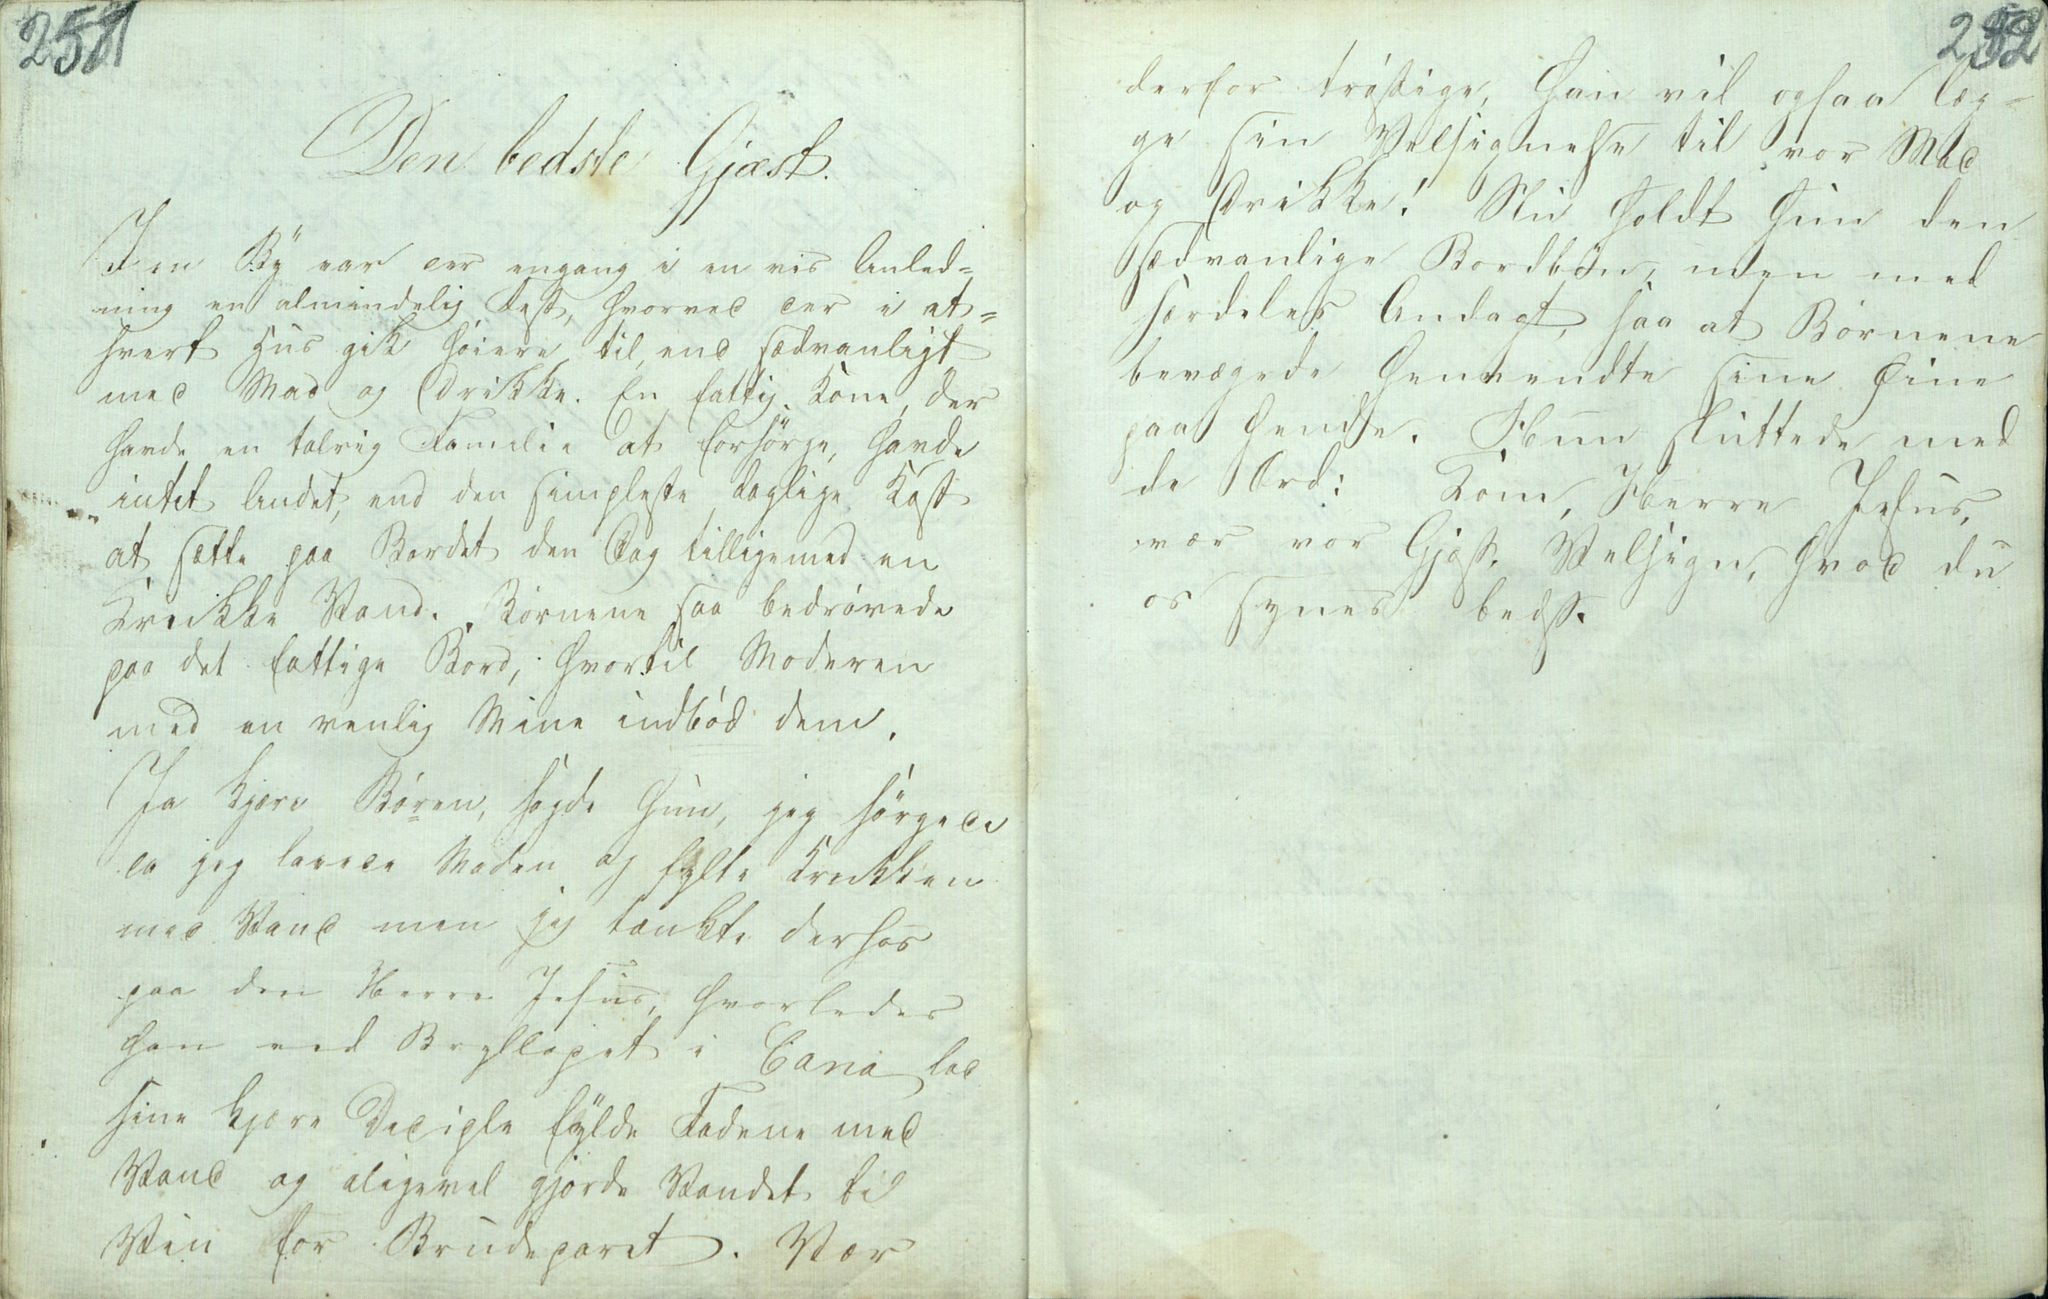 251
Den bedste Gjæst.
I en By var der engang i en vis Anled=
ning en almindelig Fest, hvorved der i et=
hvert Hus gik høiere til, end sædvanligt
med Mad og Drikke. En fattig Kone, der
havde en talrig Familie at forsörge, havde
intet Andet, end den simpleste daglige Kost
at sætte paa Bordet den Dag tilligemed en
Krukke Vand. Børnene saa bedrövede
paa det fattige Bord, hvortil Moderen
med en venlig Mine indböd dem.
Ja kjære Bören, sagde hun, jeg sörgede
da jeg lavede Maden og fylte Krukken
med Vand men jeg tænkte derhos
paa den Herre Jesus, hvorledes
han ved Bryllopet i Cana lod
sine kjære Deciple fylde Fadene med
Vand og aligevel gjorde Vandet til
Vin for Brudeparet. Vær
252
derfor tröstige, han vil ogsaa læg=
ge sin Velsignelse til vor Mad
og Drikke! Nu holdt hun den
sædvanlige Bordbön, men med
særdeles Andagt, saa at Börnene
bevægede henvendte sine Öine
paa hende. Hun sluttede med
de Ord: Kom, Herre Jesus,
vær vor Gjæst. Velsign, hvad du
os synes bedst.